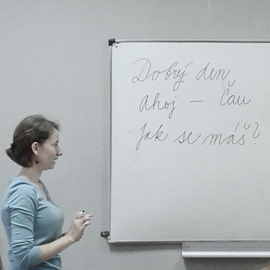 Dobrý den
Ahoj – Čau
Jak se máš?